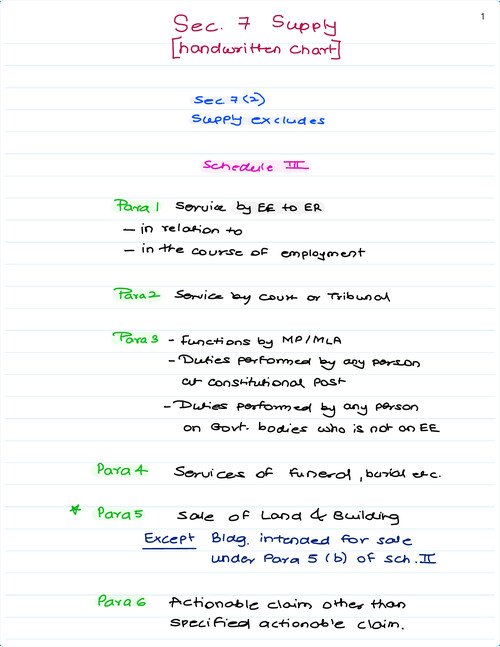 1
Sec. 7 Supply
[handwritten chart]
Sec 7(2)
Supply excludes
Schedule III
Para 1 Service by EE to ER
- in relation to
- in the course of employment
Para 2 Service by Court or Tribunal
Para 3 - Functions by MP/MLA
- Duties performed by any person
at constitutional Post
- Duties performed by any person
on Govt. bodies who is not an EE
Para 4 Services of funeral, burial etc.
* Para 5 Sale of Land & Building
Except Bldg. intended for sale
under Para 5 (b) of Sch. II
Para 6 Actionable claim other than
specified actionable claim.